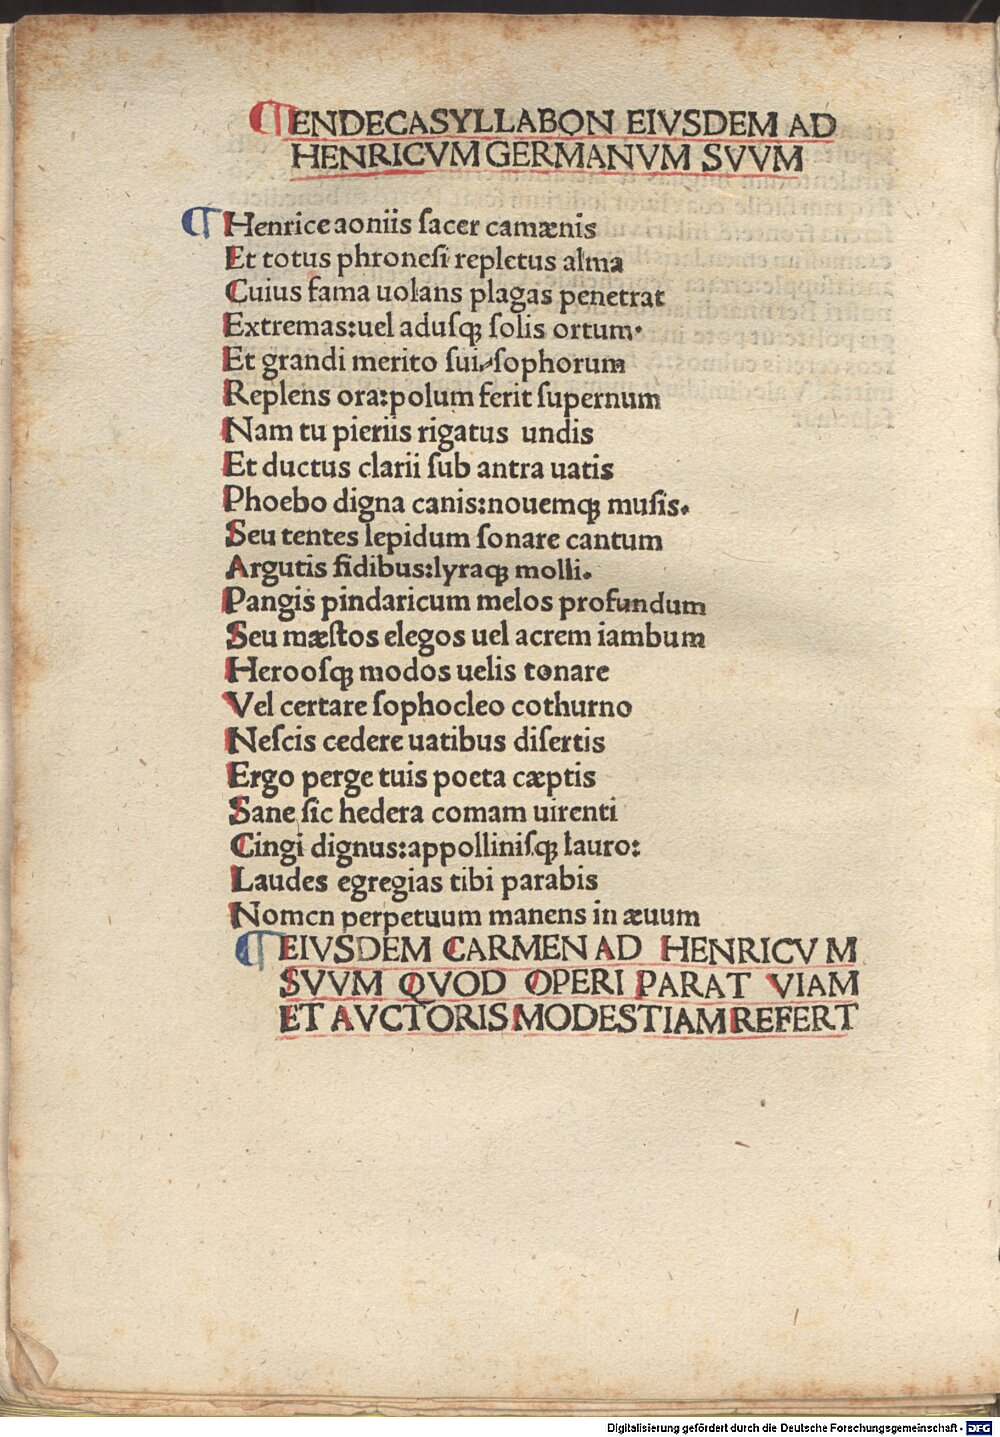 ¶ENDECASYLLABON EIVSDEM AD
HENRICVM GERMANVM SVVM
¶ Henrice aoniis ſacer camænis
Et totus phroneſi repletus alma
Cuius fama uolans plagas penetrat
Extremas:uel aduſqꝫ ſolis ortum·
Et grandi merito ſui ſophorum
Replens ora:polum ferit ſupernum
Nam tu pieriis rigatus undis
Et ductus clarii ſub antra uatis
Phoebo digna canis:nouemqꝫ muſis.
Seu tentes lepidum ſonare cantum
Argutis fidibus:lyraqꝫ molli.
Pangis pindaricum melos profundum
Seu mæſtos elegos uel acrem iambum
Herooſqꝫ modos uelis tonare
Vel certare ſophocleo cothurno
Neſcis cedere uatibus diſertis
Ergo perge tuis poeta cæptis
Sane ſic hedera comam uirenti
Cingi dignus:appolliniſqꝫ lauro:
Laudes egregias tibi parabis
Nomen perpetuum manens in æuum
¶EIVSDEM CARMEN AD HENRICVM
SVVM QVOD OPERI PARAT VIAM
ET AVCTORIS MODESTIAM REFERT
Digitalisierung gefördert durch die Deutsche Forschungsgemeinschaft - DFG